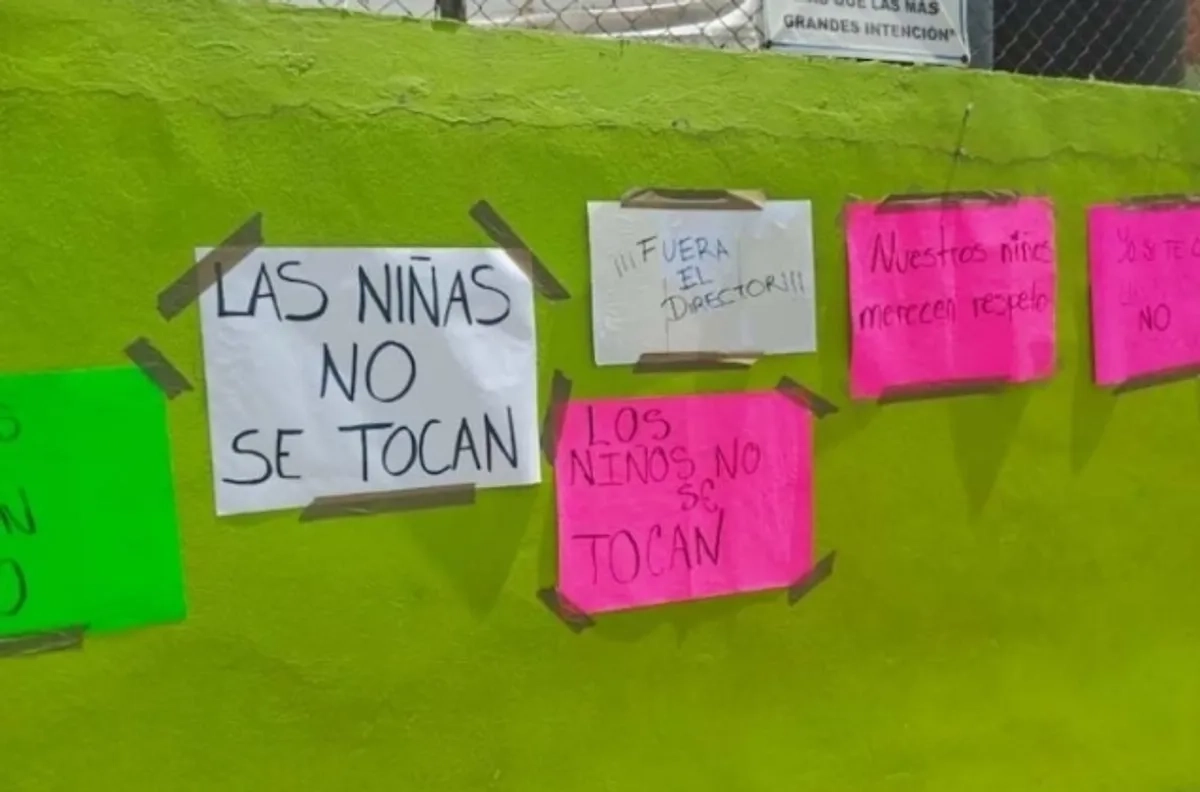 QUE LAS MÁS
GRANDES INTENCIÓN"
LAS NIÑAS
NO
SE TOCAN
¡¡¡FUERA
EL
DIRECTOR!!!
LOS
NIÑOS NO
SE
TOCAN
Nuestros niños
merecen respeto
Yo SI TE
NO